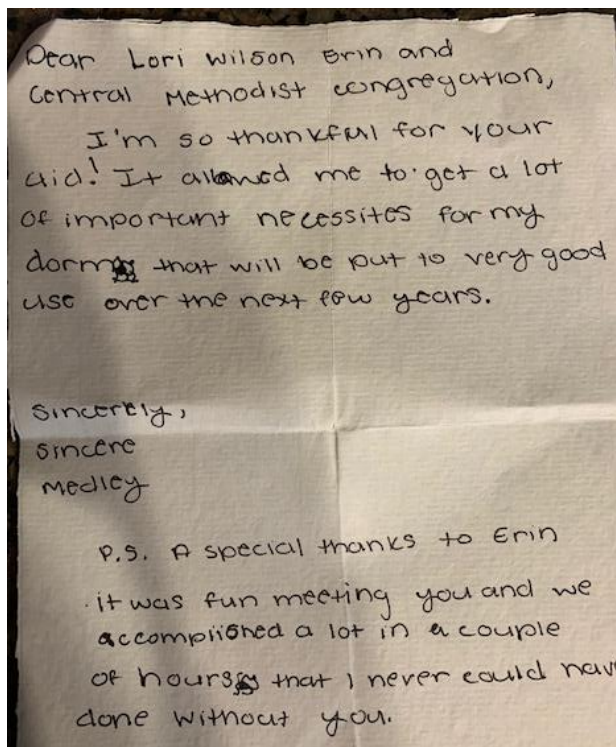 Dear Lori Wilson Erin and
Central Methodist congregation,
I'm so thankful for your
aid! It allowed me to get a lot
of important necessites for my
dorm that will be put to very good
use over the next few years.
Sincerely,
Sincere
Medley
P.S. A special thanks to Erin
it was fun meeting you and we
accomplished a lot in a couple
of hours that I never could hav
done without you.